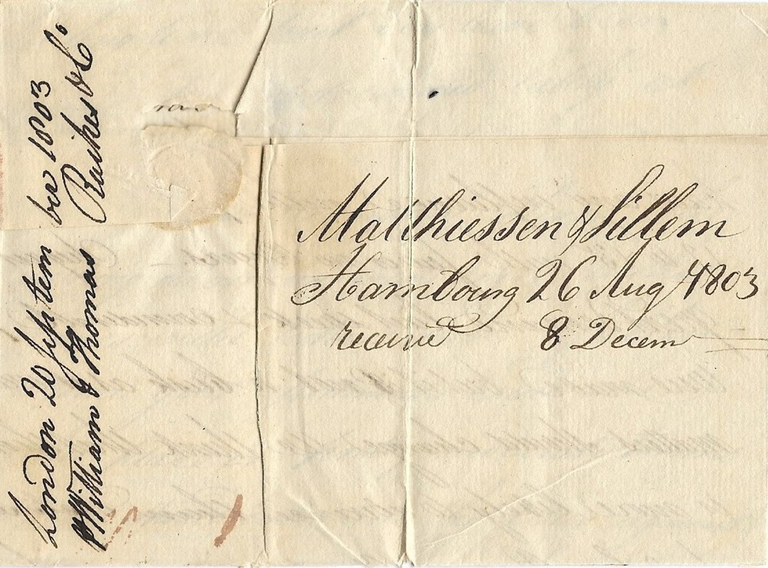 London 20 Septem ber 1803
William & Thomas Raikes & Co
Matthiessen & Sillem
Hambourg 26 Aug 1803
receivd 8 Decem